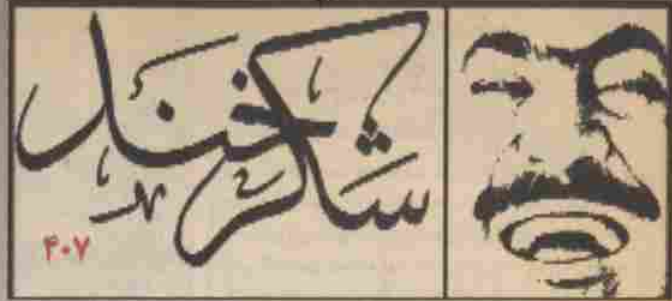 شکرخند
۴۰۷